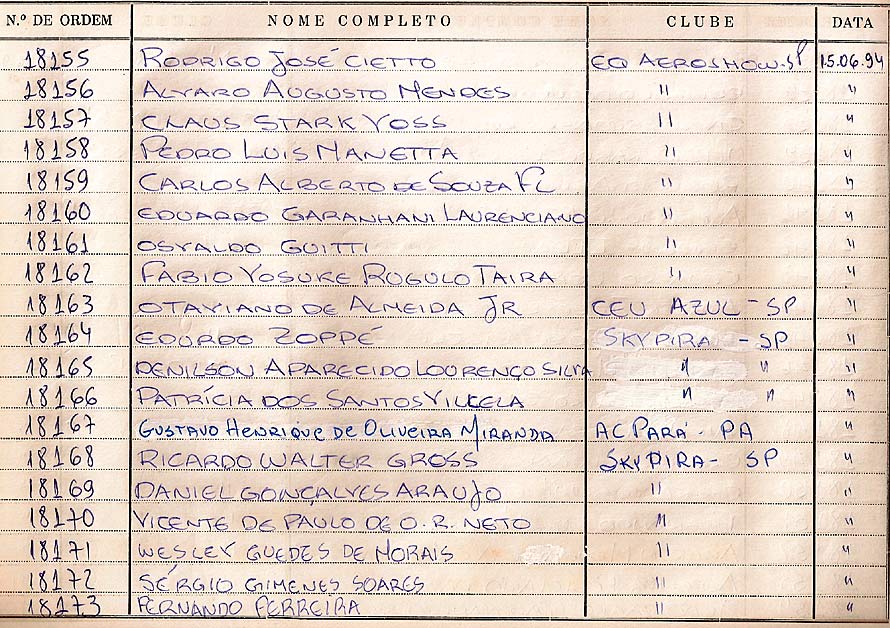 N.º DE ORDEM NOME COMPLETO CLUBE DATA
18155 RODRIGO JOSÉ CIETTO EQ AEROSHOW-SP 15.06.94
18156 ALVARO AUGUSTO MENDES " "
18157 CLAUS STARK VOSS " "
18158 PEDRO LUIS MANETTA " "
18159 CARLOS ALBERTO DE SOUZA FL " "
18160 EDUARDO GARANHANI LAURENCIANO " "
18161 OSVALDO GUITTI " "
18162 FÁBIO YOSUKE RUGULO TAIRA " "
18163 OTAVIANO DE ALMEIDA JR CEU AZUL - SP "
18164 EDURDO ZOPPÉ SKYPIRA - SP "
18165 DENILSON APARECIDO LOURENÇO SILVA " " "
18166 PATRÍCIA DOS SANTOS VILLELA " " "
18167 GUSTAVO HENRIQUE DE OLIVEIRA MIRANDA AC PARÁ - PA "
18168 RICARDO WALTER GROSS SKYPIRA - SP "
18169 DANIEL GONÇALVES ARAUJO " "
18170 VICENTE DE PAULO DE O. R. NETO " "
18171 WESLEY GUEDES DE MORAIS " "
18172 SÉRGIO GIMENES SOARES " "
18173 FERNANDO FERREIRA " "